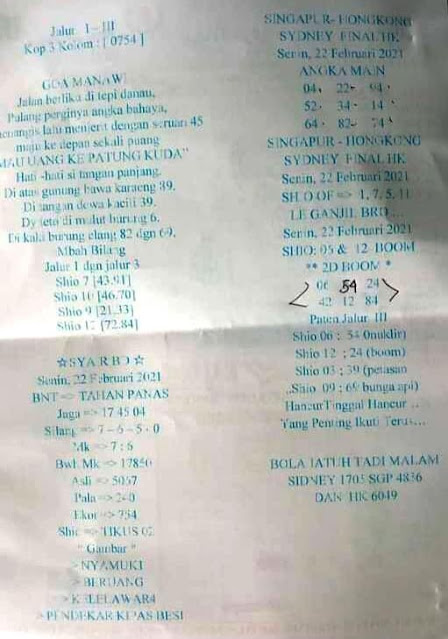 Jalur I - III
Kop 3 Kolom : [ 0754 ]
GOA MANAWI
Jalan berlika di tepi danau,
Pulang perginya angka bahaya,
menangis lalu menjerit dengan seruan 45
maju ke depan sekali puang
MAU UANG KE PATUNG KUDA"
Hati -hati si tangan panjang,
Di atas gunung bawa karaeng 39.
Di tangan dewa kaciit 39.
Dy teto di mulut burung 6.
Di kala burung elang 82 dgn 69.
Mbah Bilang
Jalur 1 dgn jalur 3
Shio 7 [43.91]
Shio 10 [46.70]
Shio 9 [21.33]
Shio 12 [72.84]
☆SYAR BD☆
Senin, 22 Februari 2021
BNT => TAHAN PANAS
Jaga => 17 45 04
Silang => 7 - 6 - 5 - 0
Mk => 7 : 6
Bwh Mk => 17850
Asli => 5057
Pala => 240
Ekor => 754
Shio => TIKUS 02
" Gambar "
> NYAMUK1
> BERUANG
> KELELAWAR4
> PENDEKAR KIPAS BESI
SINGAPUR- HONGKONG
SYDNEY FINAL HK
Senin, 22 Februari 2021
ANGKA MAIN
04 22 94
52 34 14
64 82 74
SINGAPUR - HONGKONG
SYDNEY FINAL HK
Senin, 22 Februari 2021
SHIO OF => 1, 7, 5, 11
LE GANJIL BRO....
Senin, 22 Februari 2021
SHIO: 05 & 12 BOOM
** 2D BOOM *
06 54 24
42 12 84
Paten Jalur III
Shio 06 : 54 (nuklir)
Shio 12 : 24 (boom)
Shio 03 : 39 (petasan
..Shio 09 : 69 bunga api)
HancurTinggal Hancur ...
Yang Penting Ikuti Terus...
BOLA JATUH TADI MALAM
SIDNEY 1705 SGP 4836
DAN HK 6049